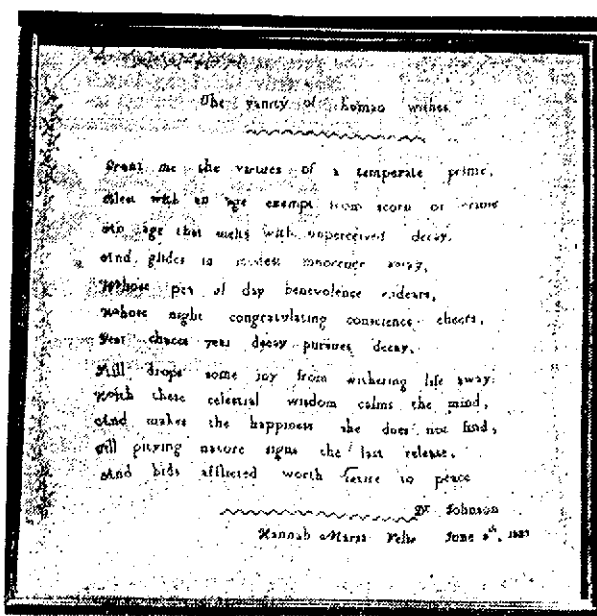 The vanity of human wishes
Grant me the virtues of a temperate prime,
Blest with an age exempt from scorn or crime
An age that melts with unperceived decay,
And glides in modest innocence away,
Whose day benevolence endears,
Whose night congratulating conscience cheers,
Year chaces year decay pursues decay,
Still drops some joy from withering life away:
With these celestial wisdom calms the mind,
And makes the happiness she does not find,
Till pitying nature signs the last release,
And bids afflicted worth retire to peace
Dr Johnson
Hannah Maria June